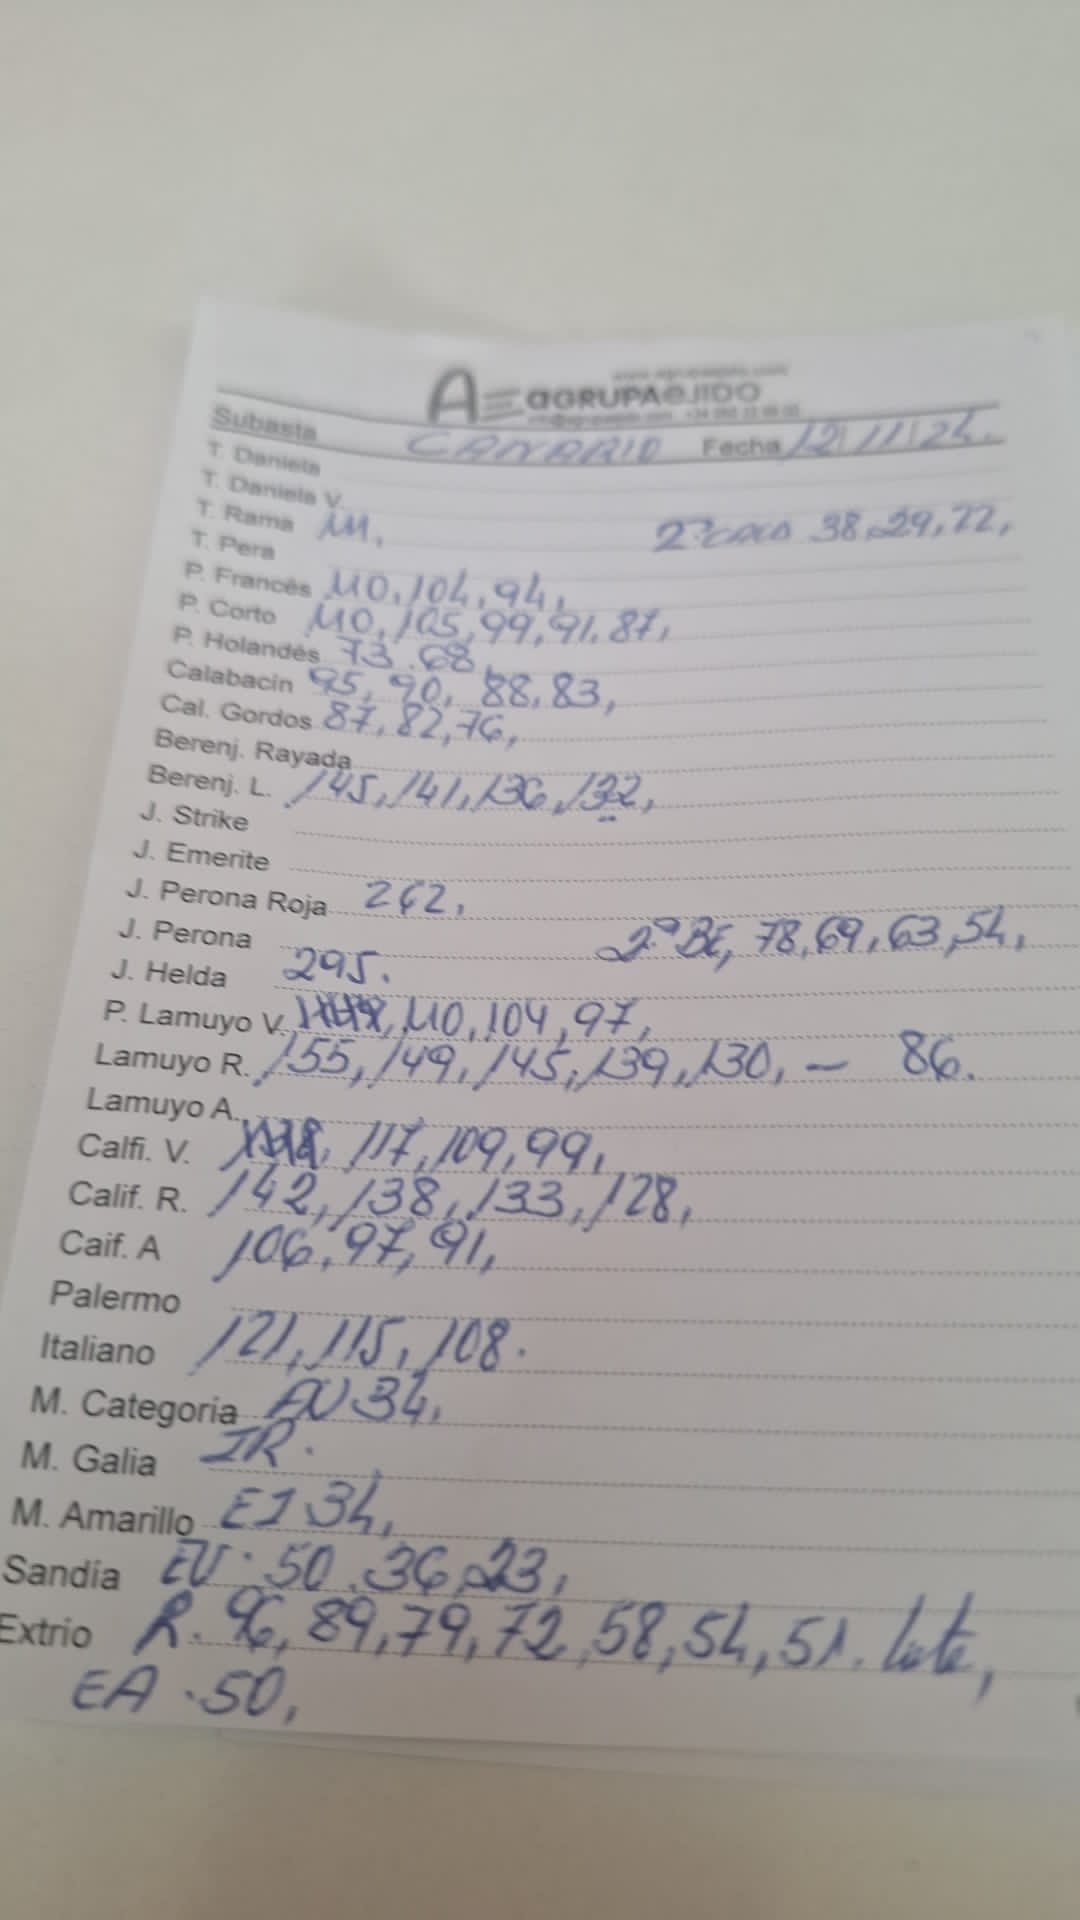 AGRUPAEJIDO
Subasta CANARIO Fecha 12/11/24.
T. Daniela
T. Daniela V.
T. Rama 111, 2ª CALA 38, 29, 22,
T. Pera
P. Francés 110, 104, 94,
P. Corto 110, 105, 99, 91, 87,
P. Holandés 73, 68,
Calabacin 95, 90, 88, 83,
Cal. Gordos 87, 82, 76,
Berenj. Rayada
Berenj. L. 145, 141, 136, 132,
J. Strike
J. Emerite
J. Perona Roja 262,
J. Perona 2ª BE, 78, 69, 63, 54,
J. Helda 295.
P. Lamuyo V. 110, 104, 97,
Lamuyo R. 155, 149, 145, 139, 130, – 86.
Lamuyo A.
Calfi. V. 117, 109, 99,
Calif. R. 142, 138, 133, 128,
Caif. A 106, 97, 91,
Palermo
Italiano 121, 115, 108.
M. Categoria 34,
M. Galia IR.
M. Amarillo EI 34,
Sandía EU. 50, 36, 23,
Extrio R. 96, 89, 79, 72, 58, 54, 51.
EA . 50,